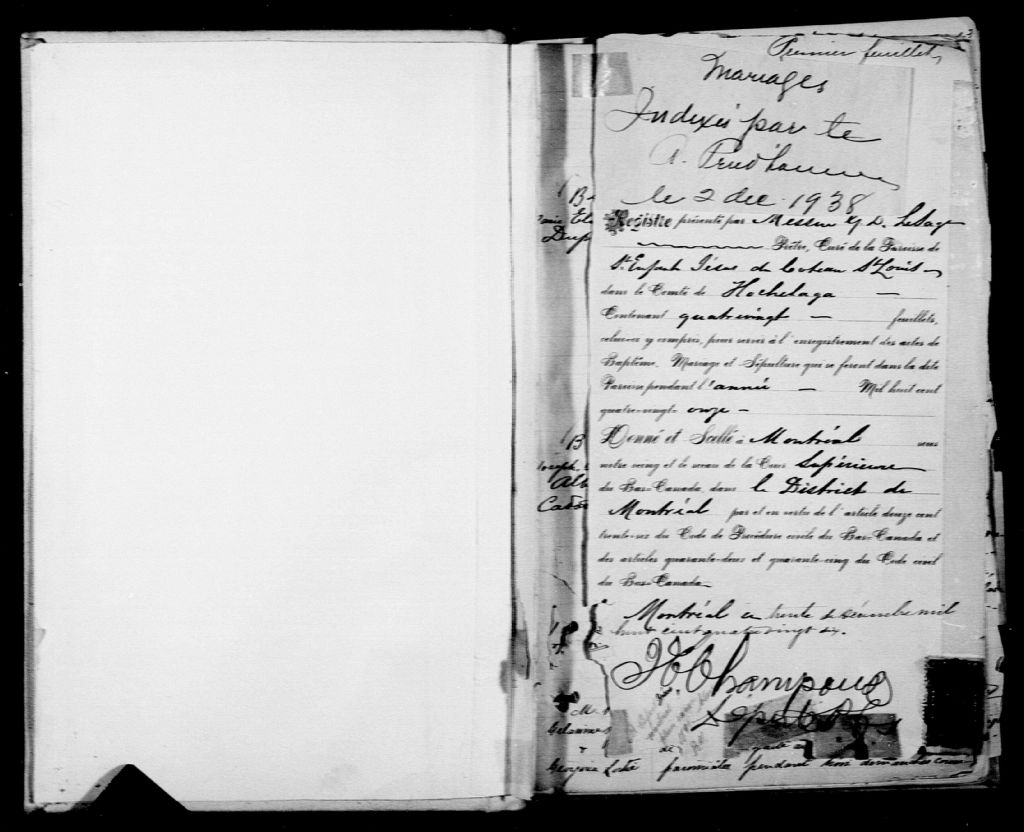 Premier feuillet
Mariages
Indexés par le
A. Prud'homme
le 2 dec. 1938
Registre présenté par Messire G. D. Lesage
Prêtre, Curé de la Paroisse de
St Enfant Jésus du Coteau St Louis
dans le Comté de Hochelaga
Contenant quatrevingt feuillets,
celui-ci y compris, pour servir à l'enregistrement des actes de
Baptême, Mariage et Sépulture qui se feront dans la dite
Paroisse pendant l'année Mil huit cent
quatre-vingt- onze
Donné et Scellé à Montréal sous
notre seing et le sceau de la Cour Supérieure
du Bas-Canada, dans le District de
Montréal par et en vertu de l'article douze cent
trente-six du Code de Procédure civile du Bas-Canada et
des articles quarante-deux et quarante-cinq du Code civil
du Bas-Canada
Montréal ce trente de décembre mil
huit cent quatrevingt dix.
Champoux
Dép
B
Dup
B
Joseph
Alb
Georgina